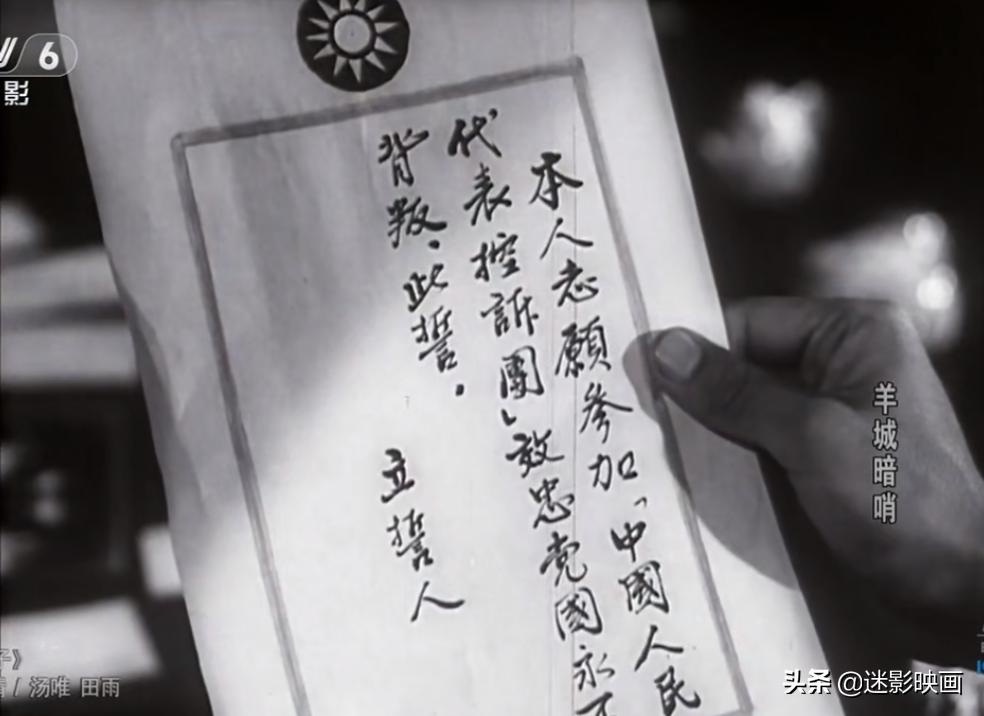 6
影
本人志願参加「中國人民
代表控訴團」效忠党國永不
背叛、此誓。
立誓人
羊城暗哨
子》
/ 汤唯 田雨
头条 @迷影映画